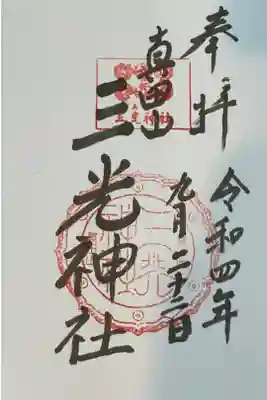 奉拝
令和四年
九月二十二日
真田山
三光神社
三光神社